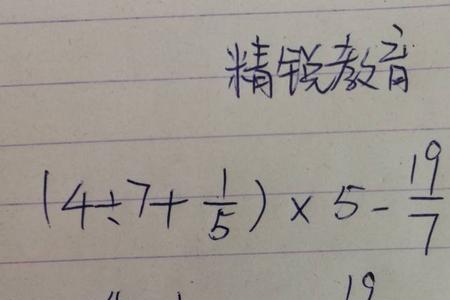 精锐教育
(4÷7+1/5)×5-19/7
19